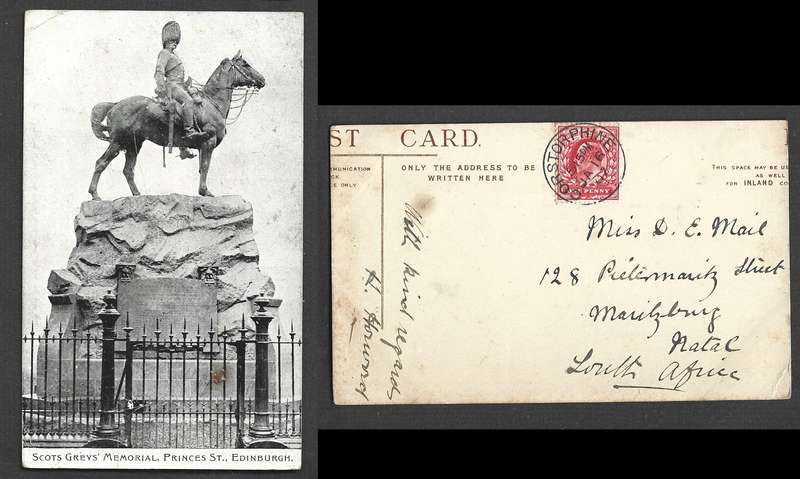 SCOTS GREYS' MEMORIAL, PRINCES ST., EDINBURGH.
ST CARD.
MMUNICATION
CK
CE ONLY
ONLY THE ADDRESS TO BE
WRITTEN HERE
THIS SPACE MAY BE U
AS WELL
FOR INLAND CO
CORSTORPHINE
PENNY
With kind regards
H.
Miss D. E. Mail
128 Pietermaritz Street
Maritzburg
Natal
South Africa